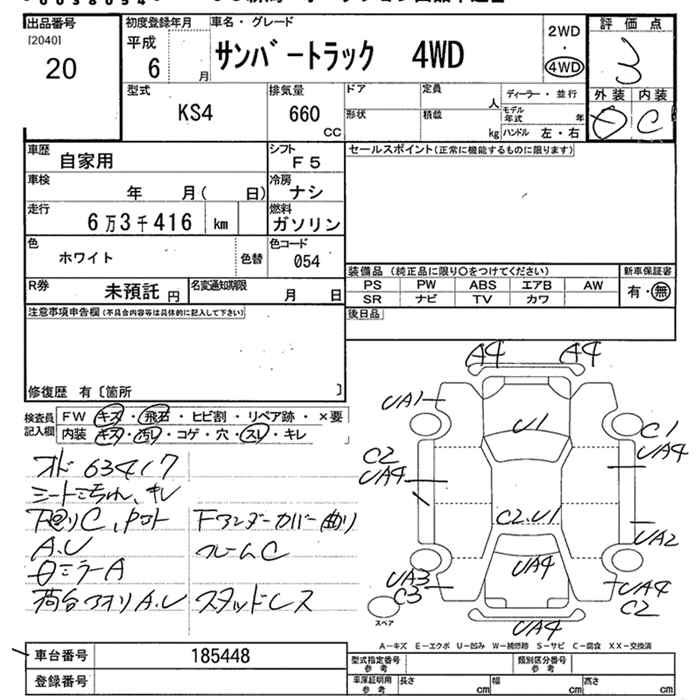 出品番号
[2040]
20
初度登録年月
平成
6 月
車名・グレード
サンバートラック 4WD
2WD
・
4WD
評価点
3
外装 内装
D C
型式
KS4
排気量
660
CC
ドア
定員
人
形状
積載
kg
ディーラー・並行
モデル年式 年
ハンドル 左・右
車歴
自家用
シフト
F5
車検
年 月( 日)
冷房
ナシ
走行
6万3千416 km
燃料
ガソリン
色
ホワイト
色替
色コード
054
R券
未預託 円
名変通知期限
月 日
セールスポイント(正常に機能するものに限ります)
装備品 (純正品に限り○をつけてください)
PS PW ABS エアB AW
SR ナビ TV カワ
新車保証書
有・無
後日品
注意事項申告欄(不具合内容等は具体的に記入して下さい)
修復歴 有〔箇所 〕
検査員記入欄
FW キズ・飛石・ヒビ割・リペア跡・×要
内装 キズ・汚レ・コゲ・穴・スレ・キレ
オド 63417
A.U
フレームC
スタッドレス
A4 A4
UA1
U1
C1
UA4
C2
UA4
C2.U1
UA2
UA3
C3
UA4
UA4
C2
UA4
スペア
A-キズ E-エクボ U-凹み W-補修跡 S-サビ C-腐食 XX-交換済
車台番号
185448
登録番号
型式指定番号
参考
類別区分番号
参考
車庫証明用
参考
長さ cm
幅 cm
高さ cm